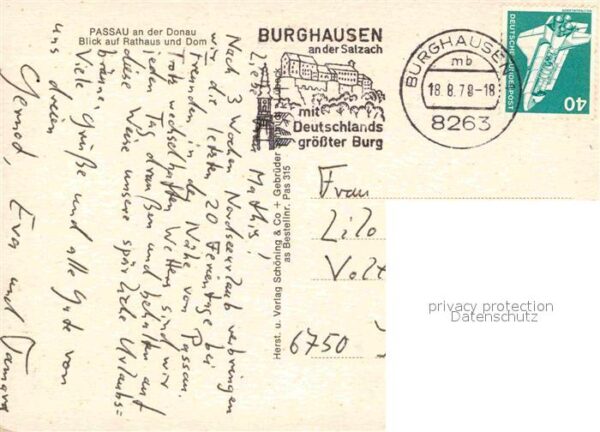 PASSAU an der Donau
Blick auf Rathaus und Dom
BURGHAUSEN
an der Salzach
mit
Deutschlands
größter Burg
BURGHAUSEN
mb
18.8.78-18
8263
DEUTSCHE BUNDESPOST
40
Mathis!
Nach 3 Wochen Nordseeurlaub verbringen
wir die letzten 20 Ferientage bei
Freunden in der Nähe von Passau.
Trotz wechselhaften Wetters sind wir
jeden Tag draußen und behalten auf
diese Weise unsere spärliche Urlaubs=
bräune. Viele Grüße und alle Gute von
uns dreien
Gernod, Eva und Tamara
Herst. u. Verlag Schöning & Co + Gebrüder
as Bestellnr. Pas 315
Frau
Lilo
Volt
6750
privacy protection
Datenschutz